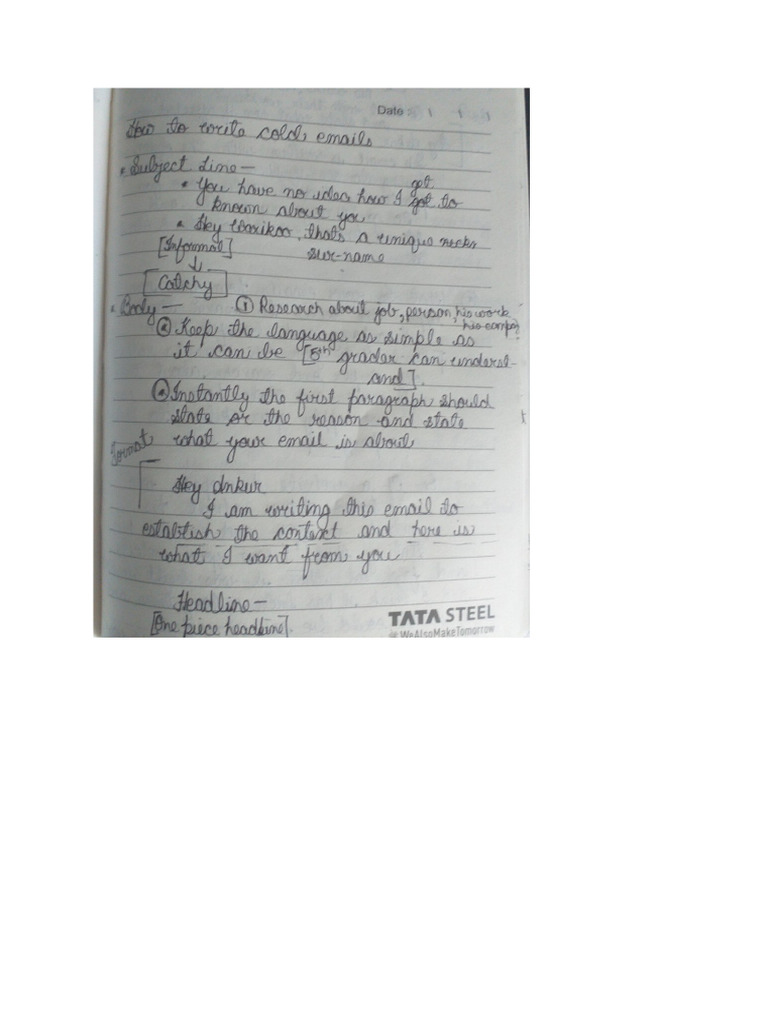 Date : / / /
How to write cold emails
• Subject Line –
• You have no idea how I got got to
known about you
• Hey Warikoo, that's a unique
[Informal] sur-name
↓
Catchy
• Body – ① Research about job, person, his work
his
② Keep the language as simple as
it can be [5th grader can underst-
and].
Instantly the first paragraph should
state or the reason and state
what your email is about
Format
Hey Ankur
I am writing this email to
establish the context and here is
what I want from you
Headline –
[One piece headline]
TATA STEEL
#WeAlsoMakeTomorrow